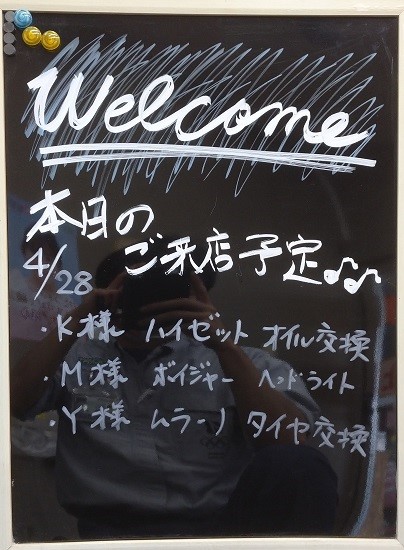 Welcome
本日の
4/28 ご来店予定♪♫
・K様 ハイゼット オイル交換
・M様 ボイジャー ヘッドライト
・Y様 ムラーノ タイヤ交換